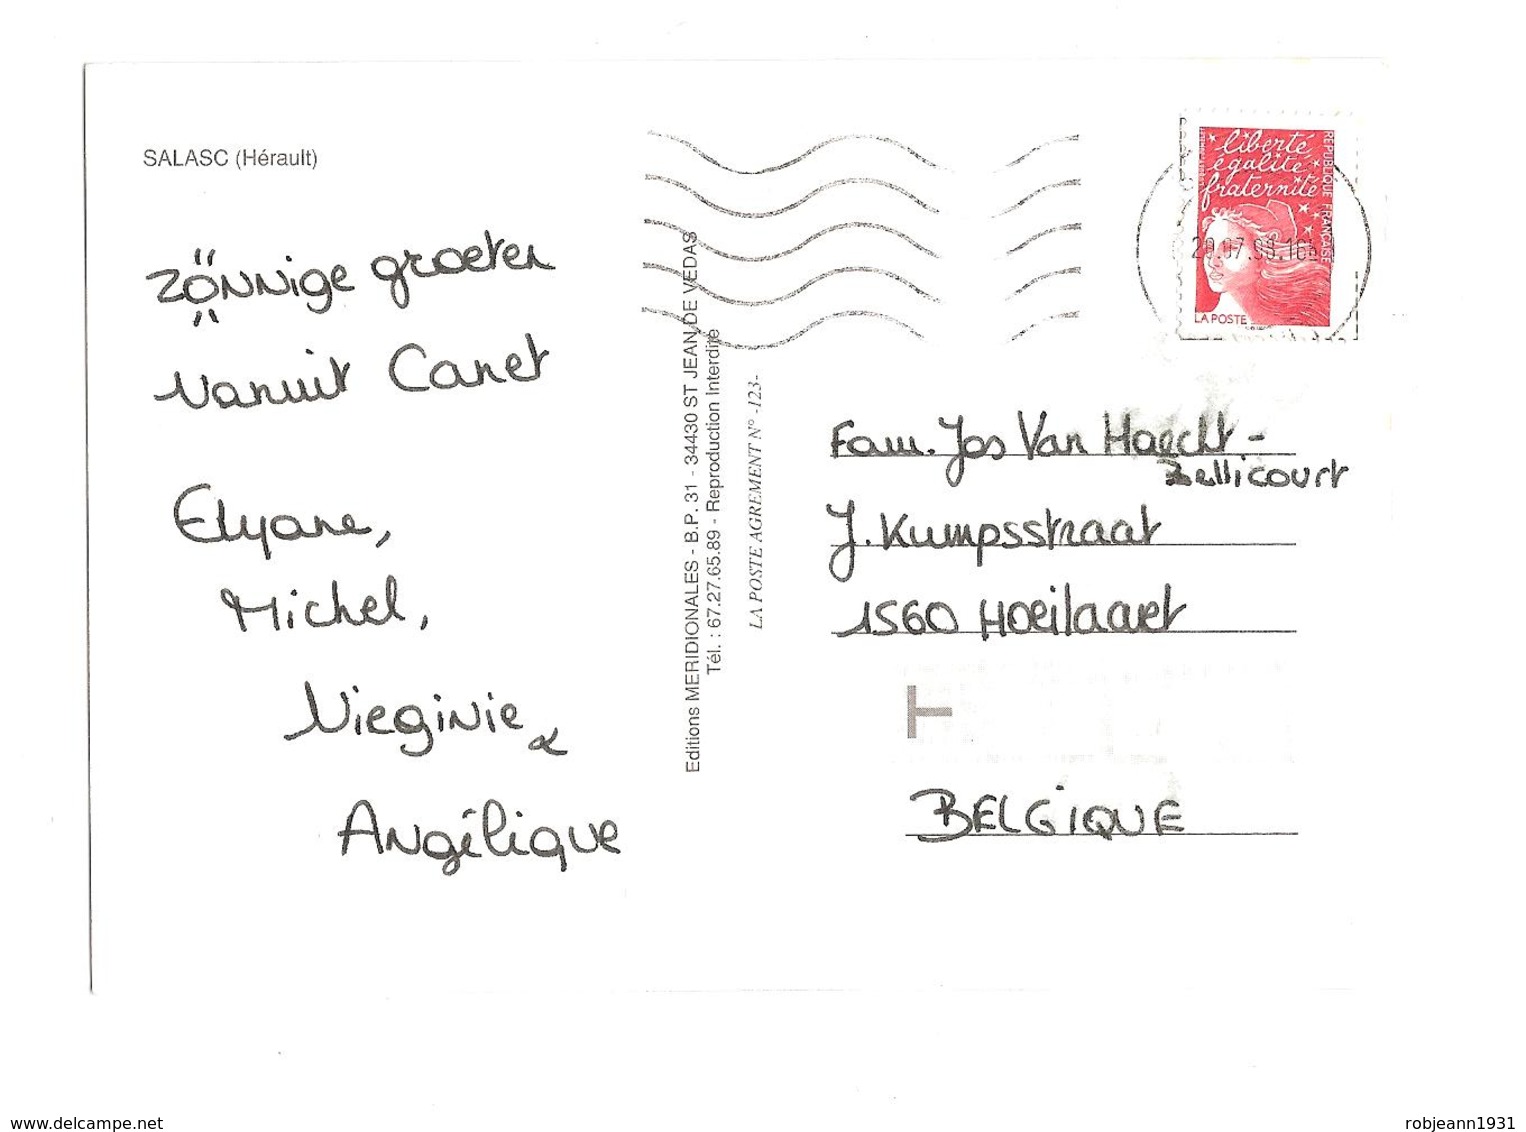 SALASC (Hérault)
zonnige groeten
vanuit Canet
Elyane,
Michel,
Virginie &
Angélique
Editions MERIDIONALES - B.P. 31 - 34430 ST JEAN DE VEDAS
Tél. : 67.27.65.89 - Reproduction Interdite
LA POSTE AGREMENT N° -123-
liberté
égalité
fraternité
REPUBLIQUE FRANÇAISE
LA POSTE
Fam. Jos Van Haecht -
Bellicourt
J. Kumpsstraat
1560 Hoeilaart
T
BELGIQUE
delcampe.net
robjeann1931